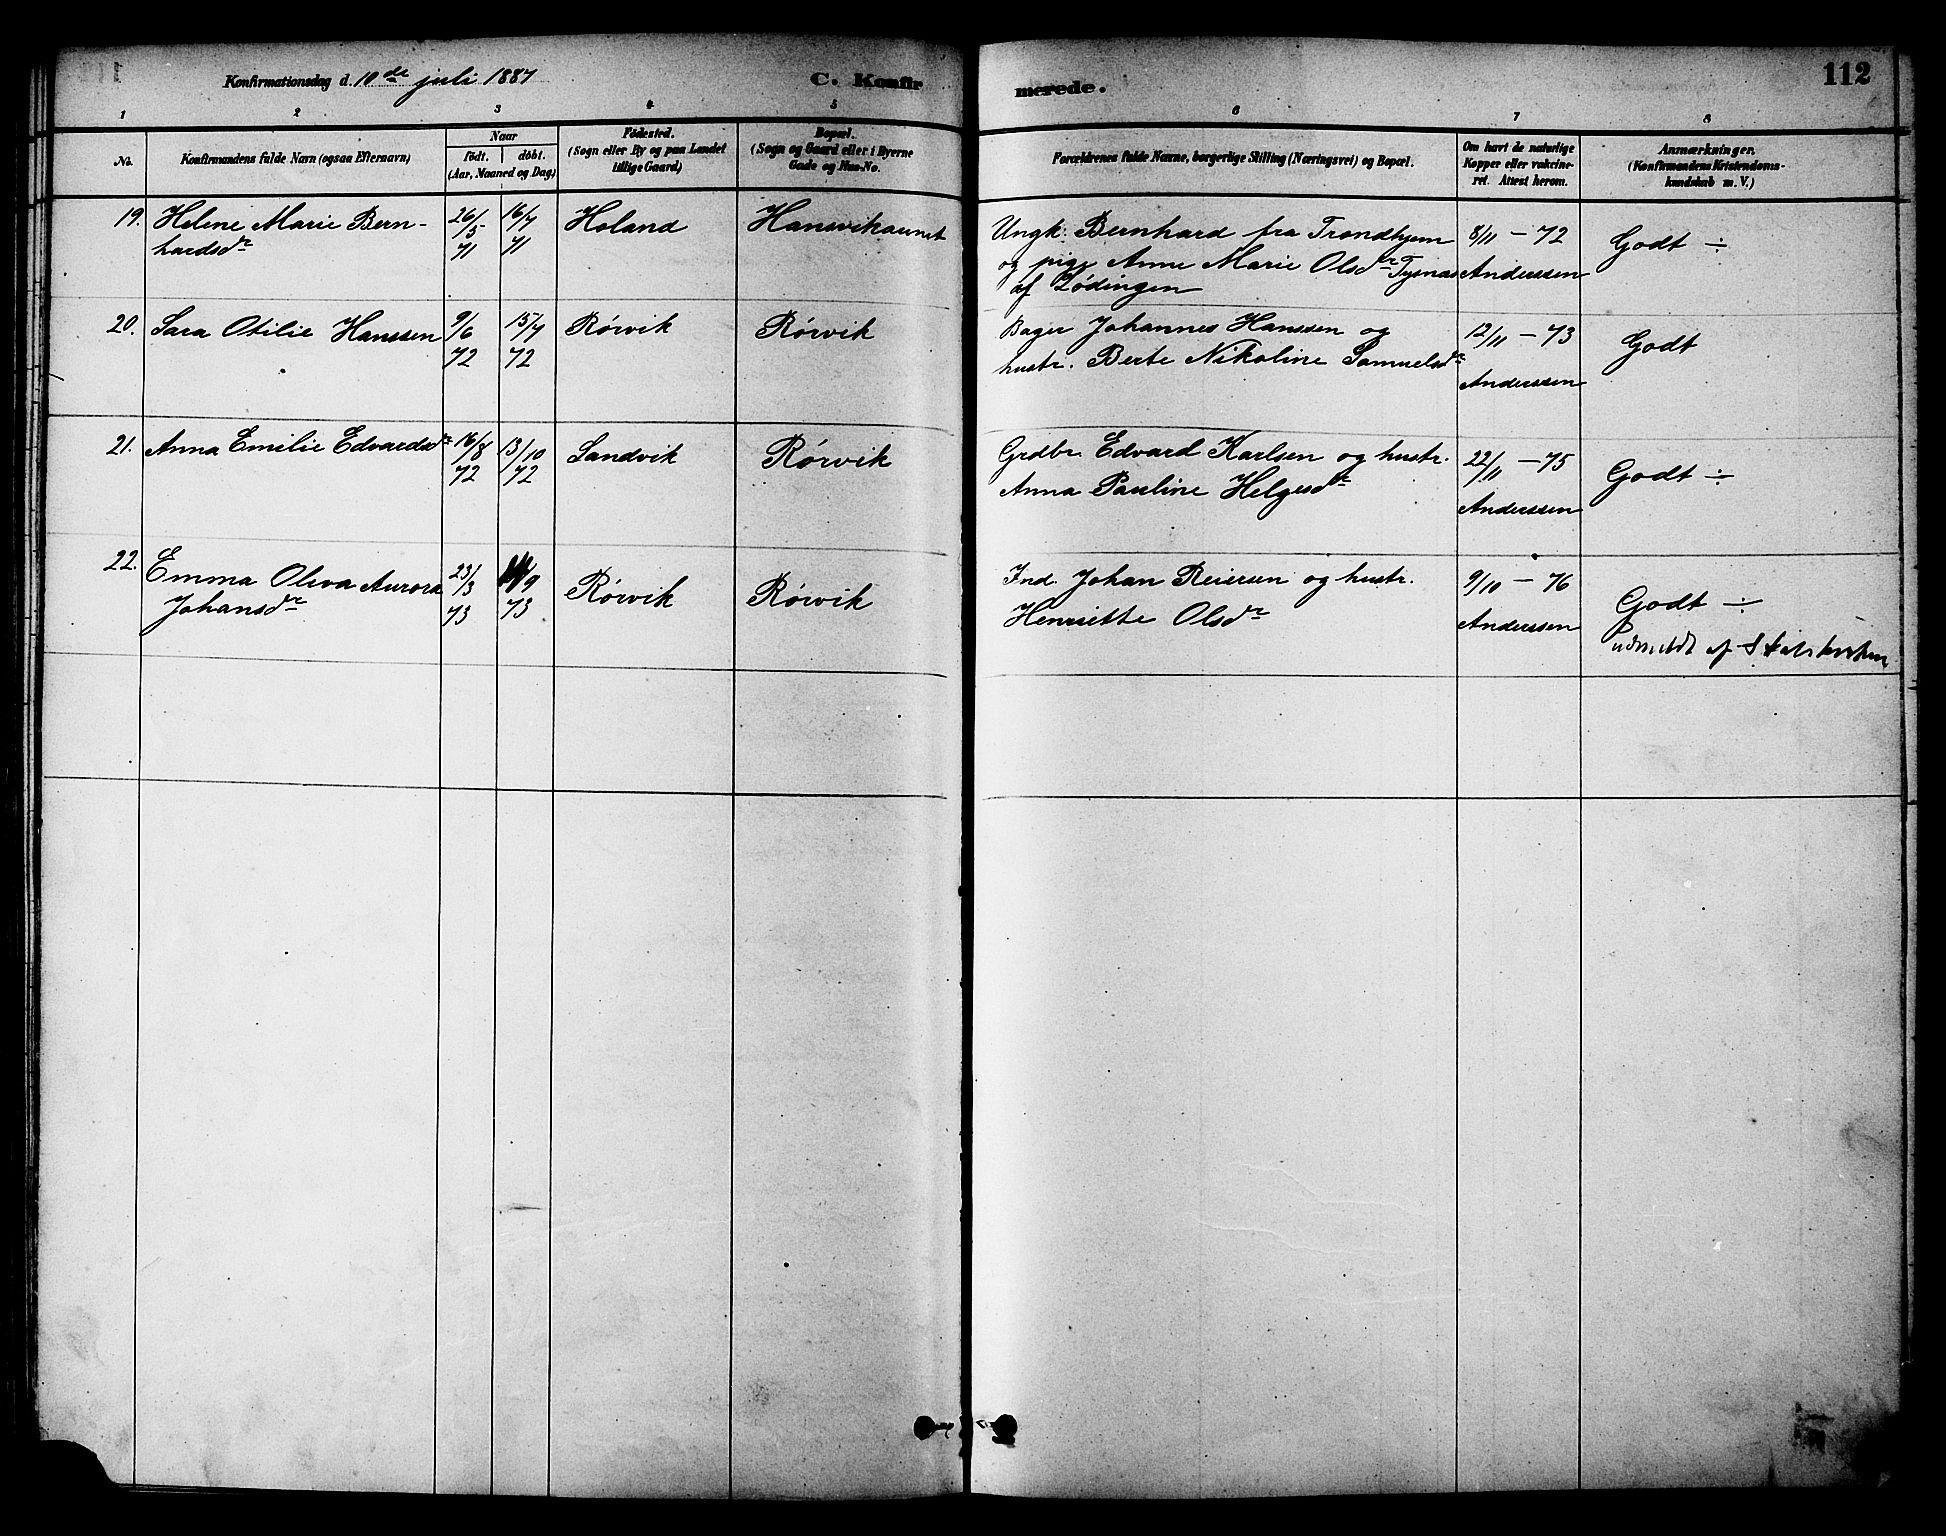 Konfirmationsdag d. 10de juli 1887
C. Konfirmerede.
112
1 2 3 4 5 6 7 8
No.
Konfirmandens fulde Navn (ogsaa Efternavn)
Naar
født. døbt.
(Aar, Maaned og Dag)
Fødested.
(Sogn eller By og paa Landet
tillige Gaard)
Bopæl.
(Sogn og Gaard eller i Byerne
Gade og Hus-No.
Forældrenes fulde Navne, borgerlige Stilling (Næringsvei) og Bopæl.
Om havt de naturlige
Kopper eller vakcine-
ret. Attest herom.
Anmærkninger.
(Konfirmandens Kristendoms-
kundskab m. V.)
19. Helene Marie Bern- 26/5 16/7 Holand Hansvikaunet Ungk. Bernhard fra Trondhjem 8/11 - 72 Godt ÷
hardsdr 71 71 og pige Anne Marie Olsdr Tysnas Anderssen
af Lødingen
20. Sara Otilie Hanssen 9/6 15/7 Rørvik Rørvik Bager Johannes Hanssen og 12/11 - 73 Godt
72 72 hustr. Berte Nikoline Samuelsdr Anderssen
21. Anna Emilie Edvardsdr 16/8 13/10 Sandvik Rørvik Grdbr. Edvard Karlsen og hustr. 22/11 - 75 Godt ÷
72 72 Anna Pauline Helgesdr Anderssen
22. Emma Oliva Aurora 23/3 /9 Rørvik Rørvik Ind. Johan Reiersen og hustr. 9/10 - 76 Godt ÷
Johansdr 73 73 Henriette Olsdr Anderssen
udmeldt af Statskirken